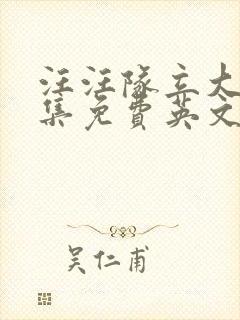 汪汪队立大
集免费英文
吴仁甫